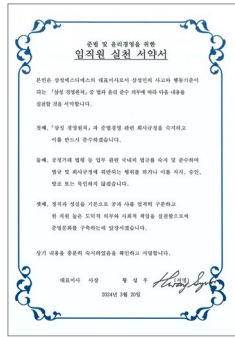 준법 및 윤리경영을 위한
임직원 실천 서약서
본인은 삼성에스디에스의 대표이사로서 삼성인의 사고와 행동기준이
되는 「삼성 경영원칙」중 법과 윤리 준수 의무에 따라 다음 내용을
실천할 것을 서약합니다.
첫째, 「삼성 경영원칙」과 준법경영 관련 회사규정을 숙지하고
이를 반드시 준수하겠습니다.
둘째, 공정거래 법령 등 업무 관련 국내외 법규를 숙지 및 준수하며
법규 및 회사규정에 위반되는 행위를 하거나 이를 지시, 승인,
방조 또는 묵인하지 않겠습니다.
셋째, 정직과 성실을 기본으로 공과 사를 엄격히 구분하고
한 차원 높은 도덕적 의무와 사회적 책임을 실천함으로써
준법문화를 구축하는데 앞장서겠습니다.
상기 내용을 충분히 숙지하였음을 확인하고 서명합니다.
대표이사 사장 황 성 우 (서명)
2024년 3월 20일